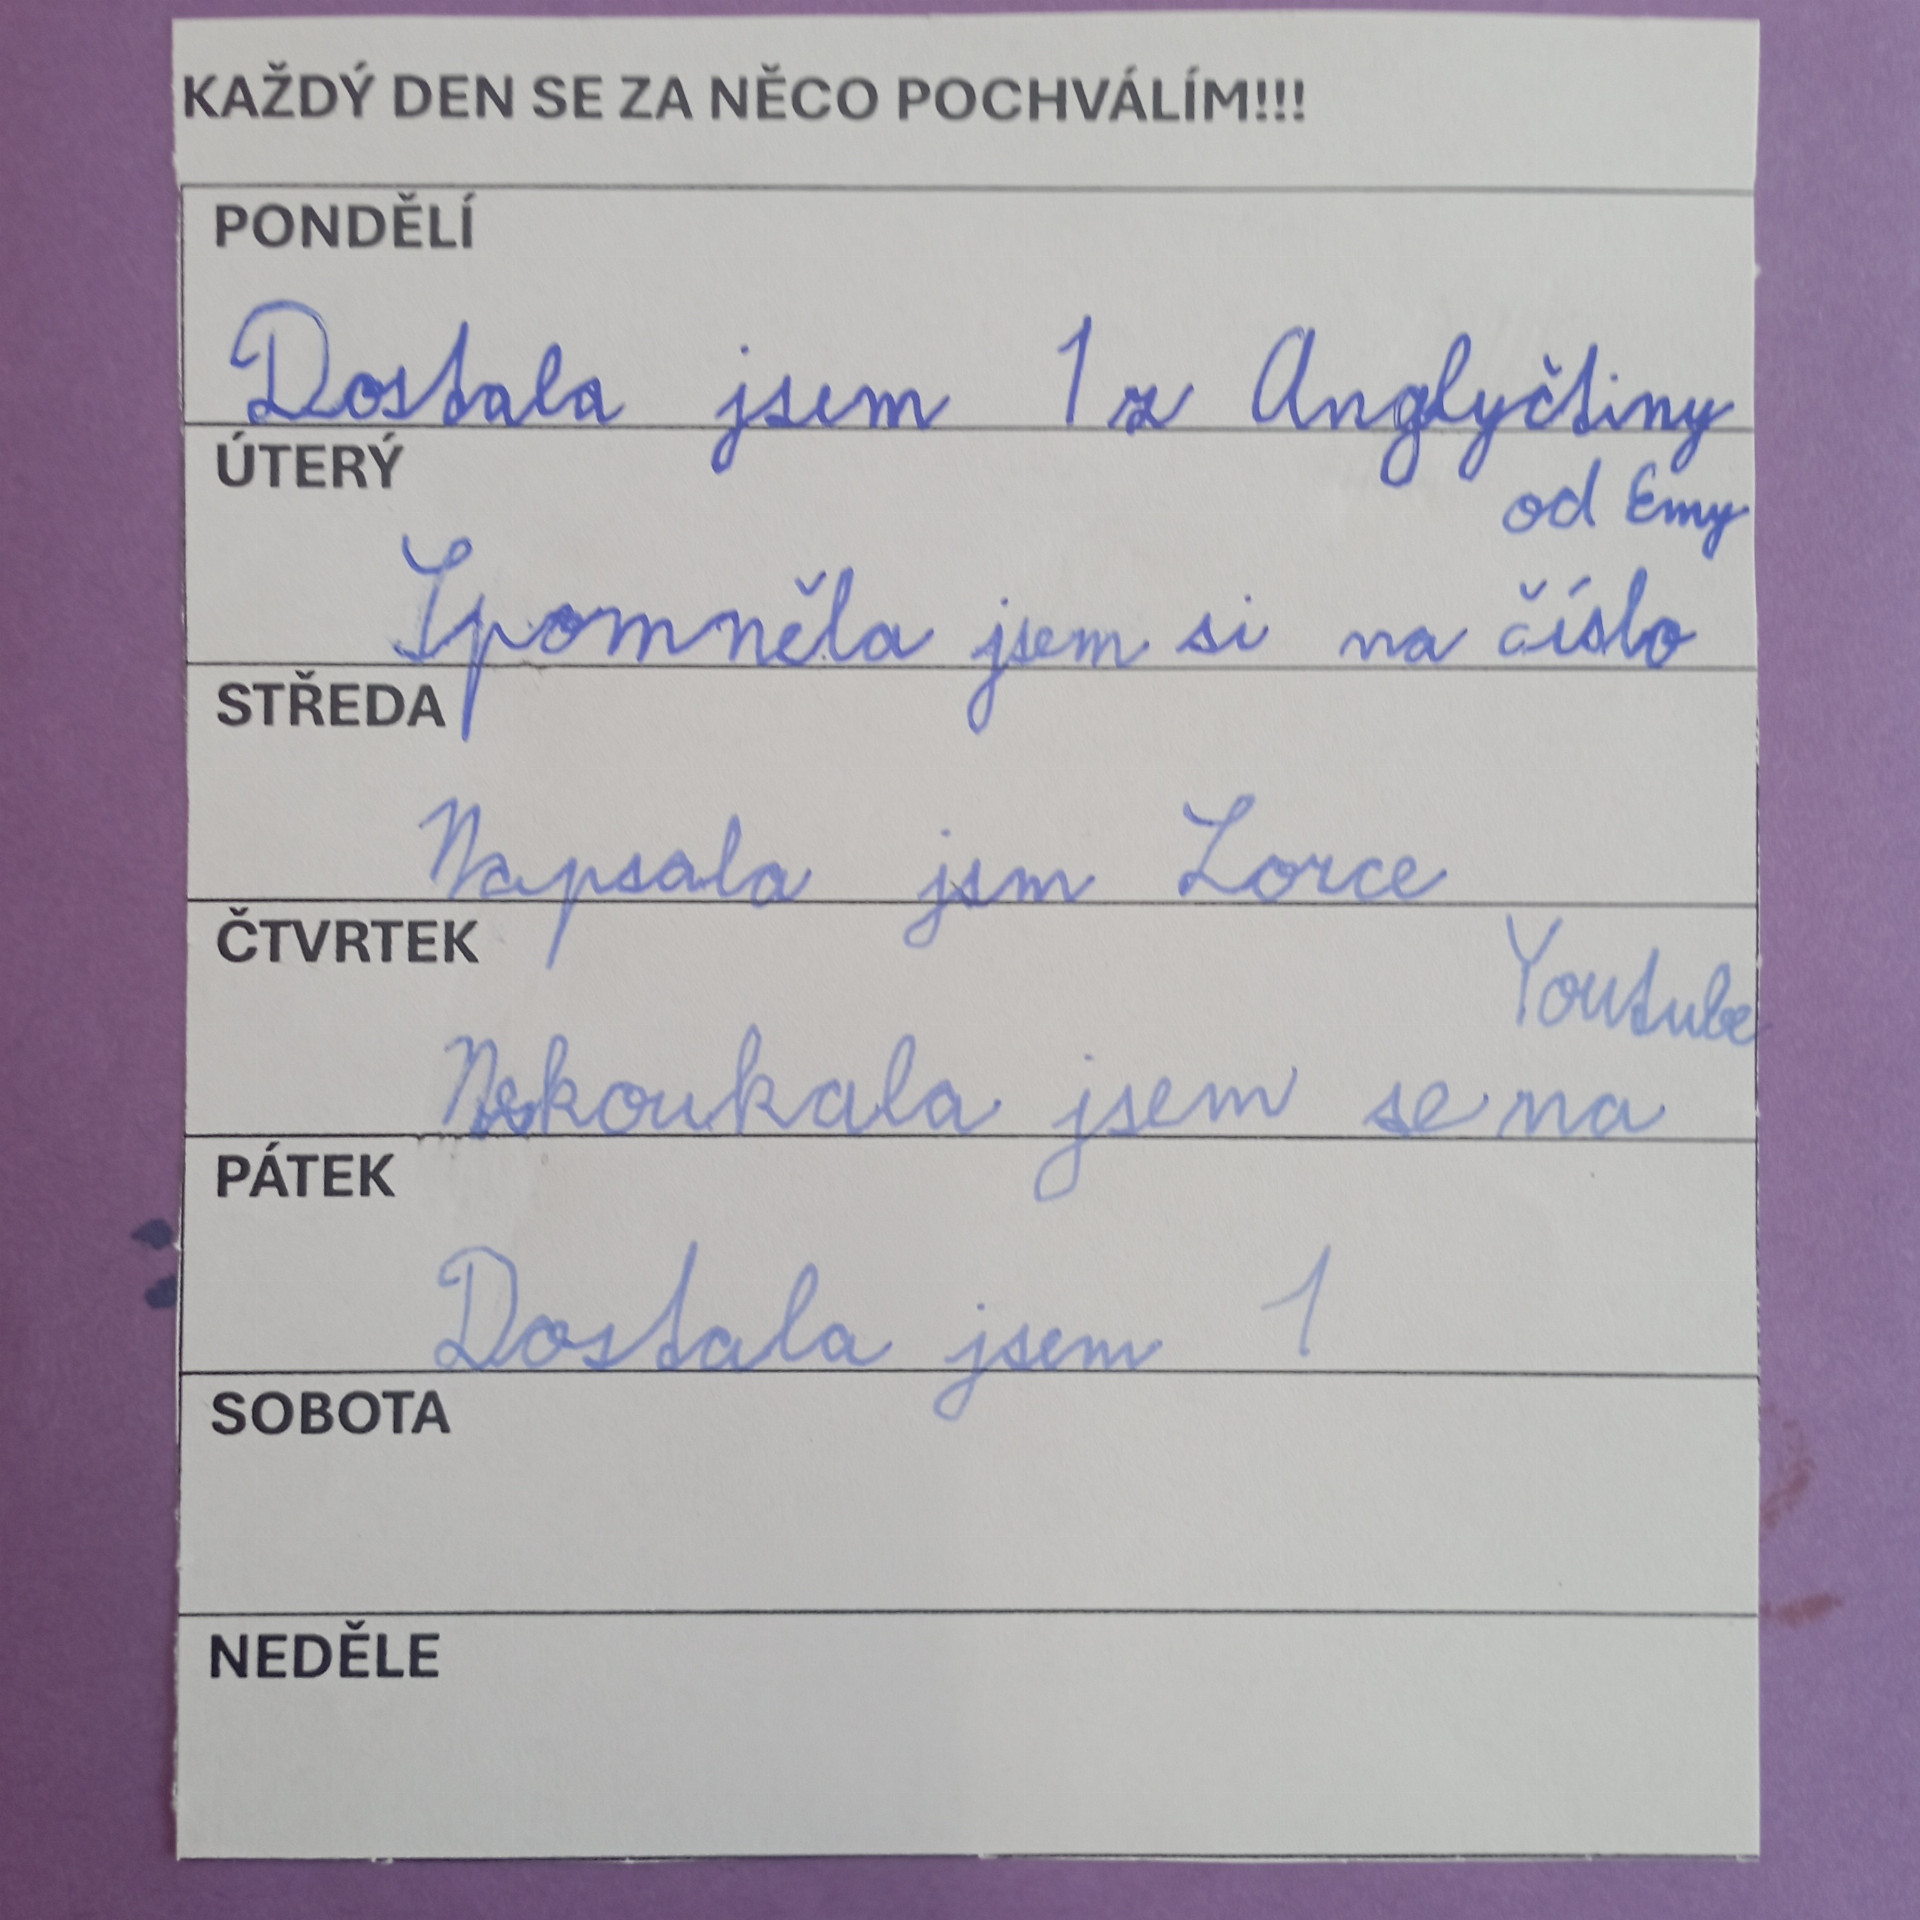 KAŽDÝ DEN SE ZA NĚCO POCHVÁLÍM!!!
PONDĚLÍ
Dostala jsem 1 z Anglyčtiny
ÚTERÝ
od Emy
Spomněla jsem si na číslo
STŘEDA
Napsala jsm Lorce
ČTVRTEK
Youtube
Nekoukala jsem se na
PÁTEK
Dostala jsem 1
SOBOTA
NEDĚLE